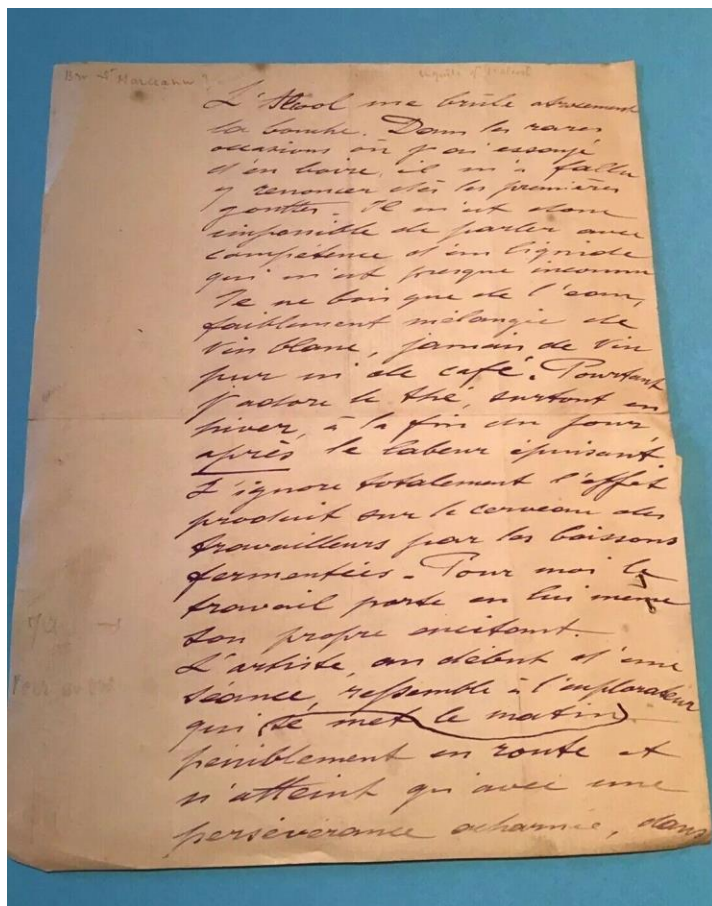 L'Alcool me brûle atrocement
la bouche. Dans les rares
occasions où j'ai essayé
d'en boire, il m'a fallu
y renoncer dès les premières
gouttes. Il m'est donc
impossible de parler avec
compétence d'un liquide
qui m'est presque inconnu
Je ne bois que de l'eau,
faiblement mélangée de
vin blanc, jamais de vin
pur ni de café. Pourtant
j'adore le thé, surtout en
hiver, à la fin du jour
après le labeur épuisant.
J'ignore totalement l'effet
produit sur le cerveau des
travailleurs par les boissons
fermentées. Pour moi le
travail porte en lui même
son propre excitant.
L'artiste, au début d'une
séance, ressemble à l'explorateur
qui se met le matin
péniblement en route et
n'atteint qu'avec une
persévérance acharnée, dans